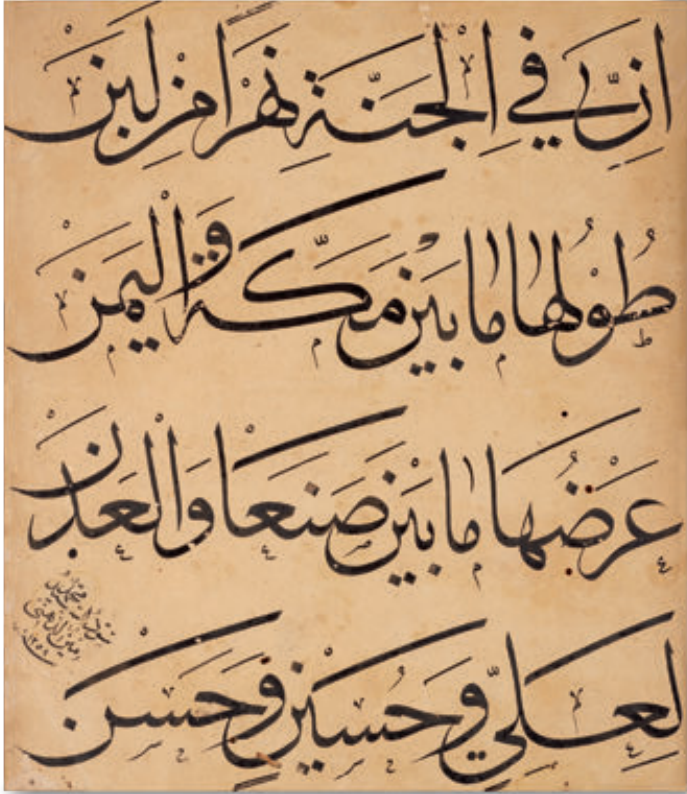 اِنَّ فِي اْلجَنَّةِ نَهْرًا مِنْ لَبَنْ
طُوْلُهَا مَا بَيْنَ مَكَّةَ وَاْليَمَنْ
عَرْضُهَا مَا بَيْنَ صَنْعَا وَاْلعَدَنْ
لِعَلِيٍّ وَحُسَيْنٍ وَحَسَنْ